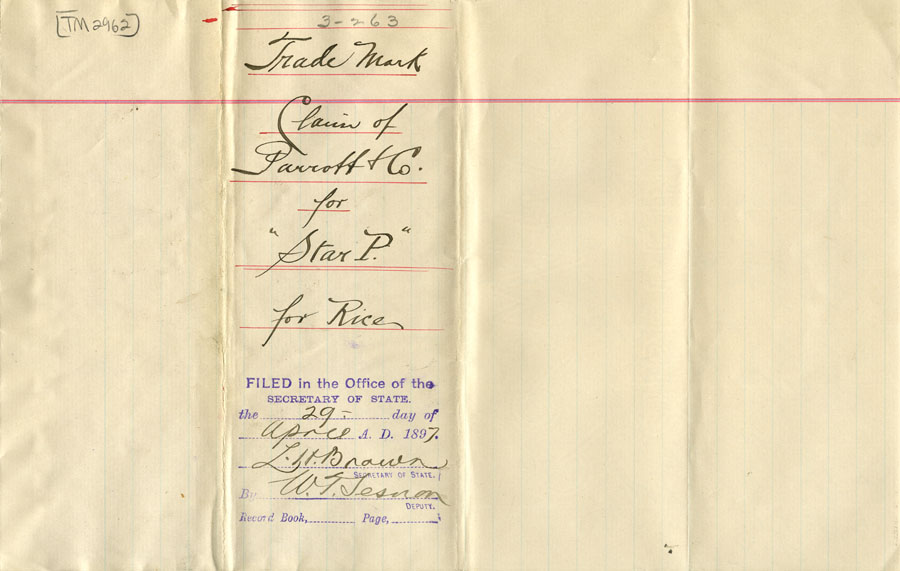 [TM2962]
3-263
Trade Mark
Claim of
Parrott & Co.
for
"Star P."
for Rice
FILED in the Office of the
SECRETARY OF STATE.
the 29- day of
April A. D. 1897.
L. H. Brown
SECRETARY OF STATE.
By W. T. Sesnon
DEPUTY.
Record Book, Page,